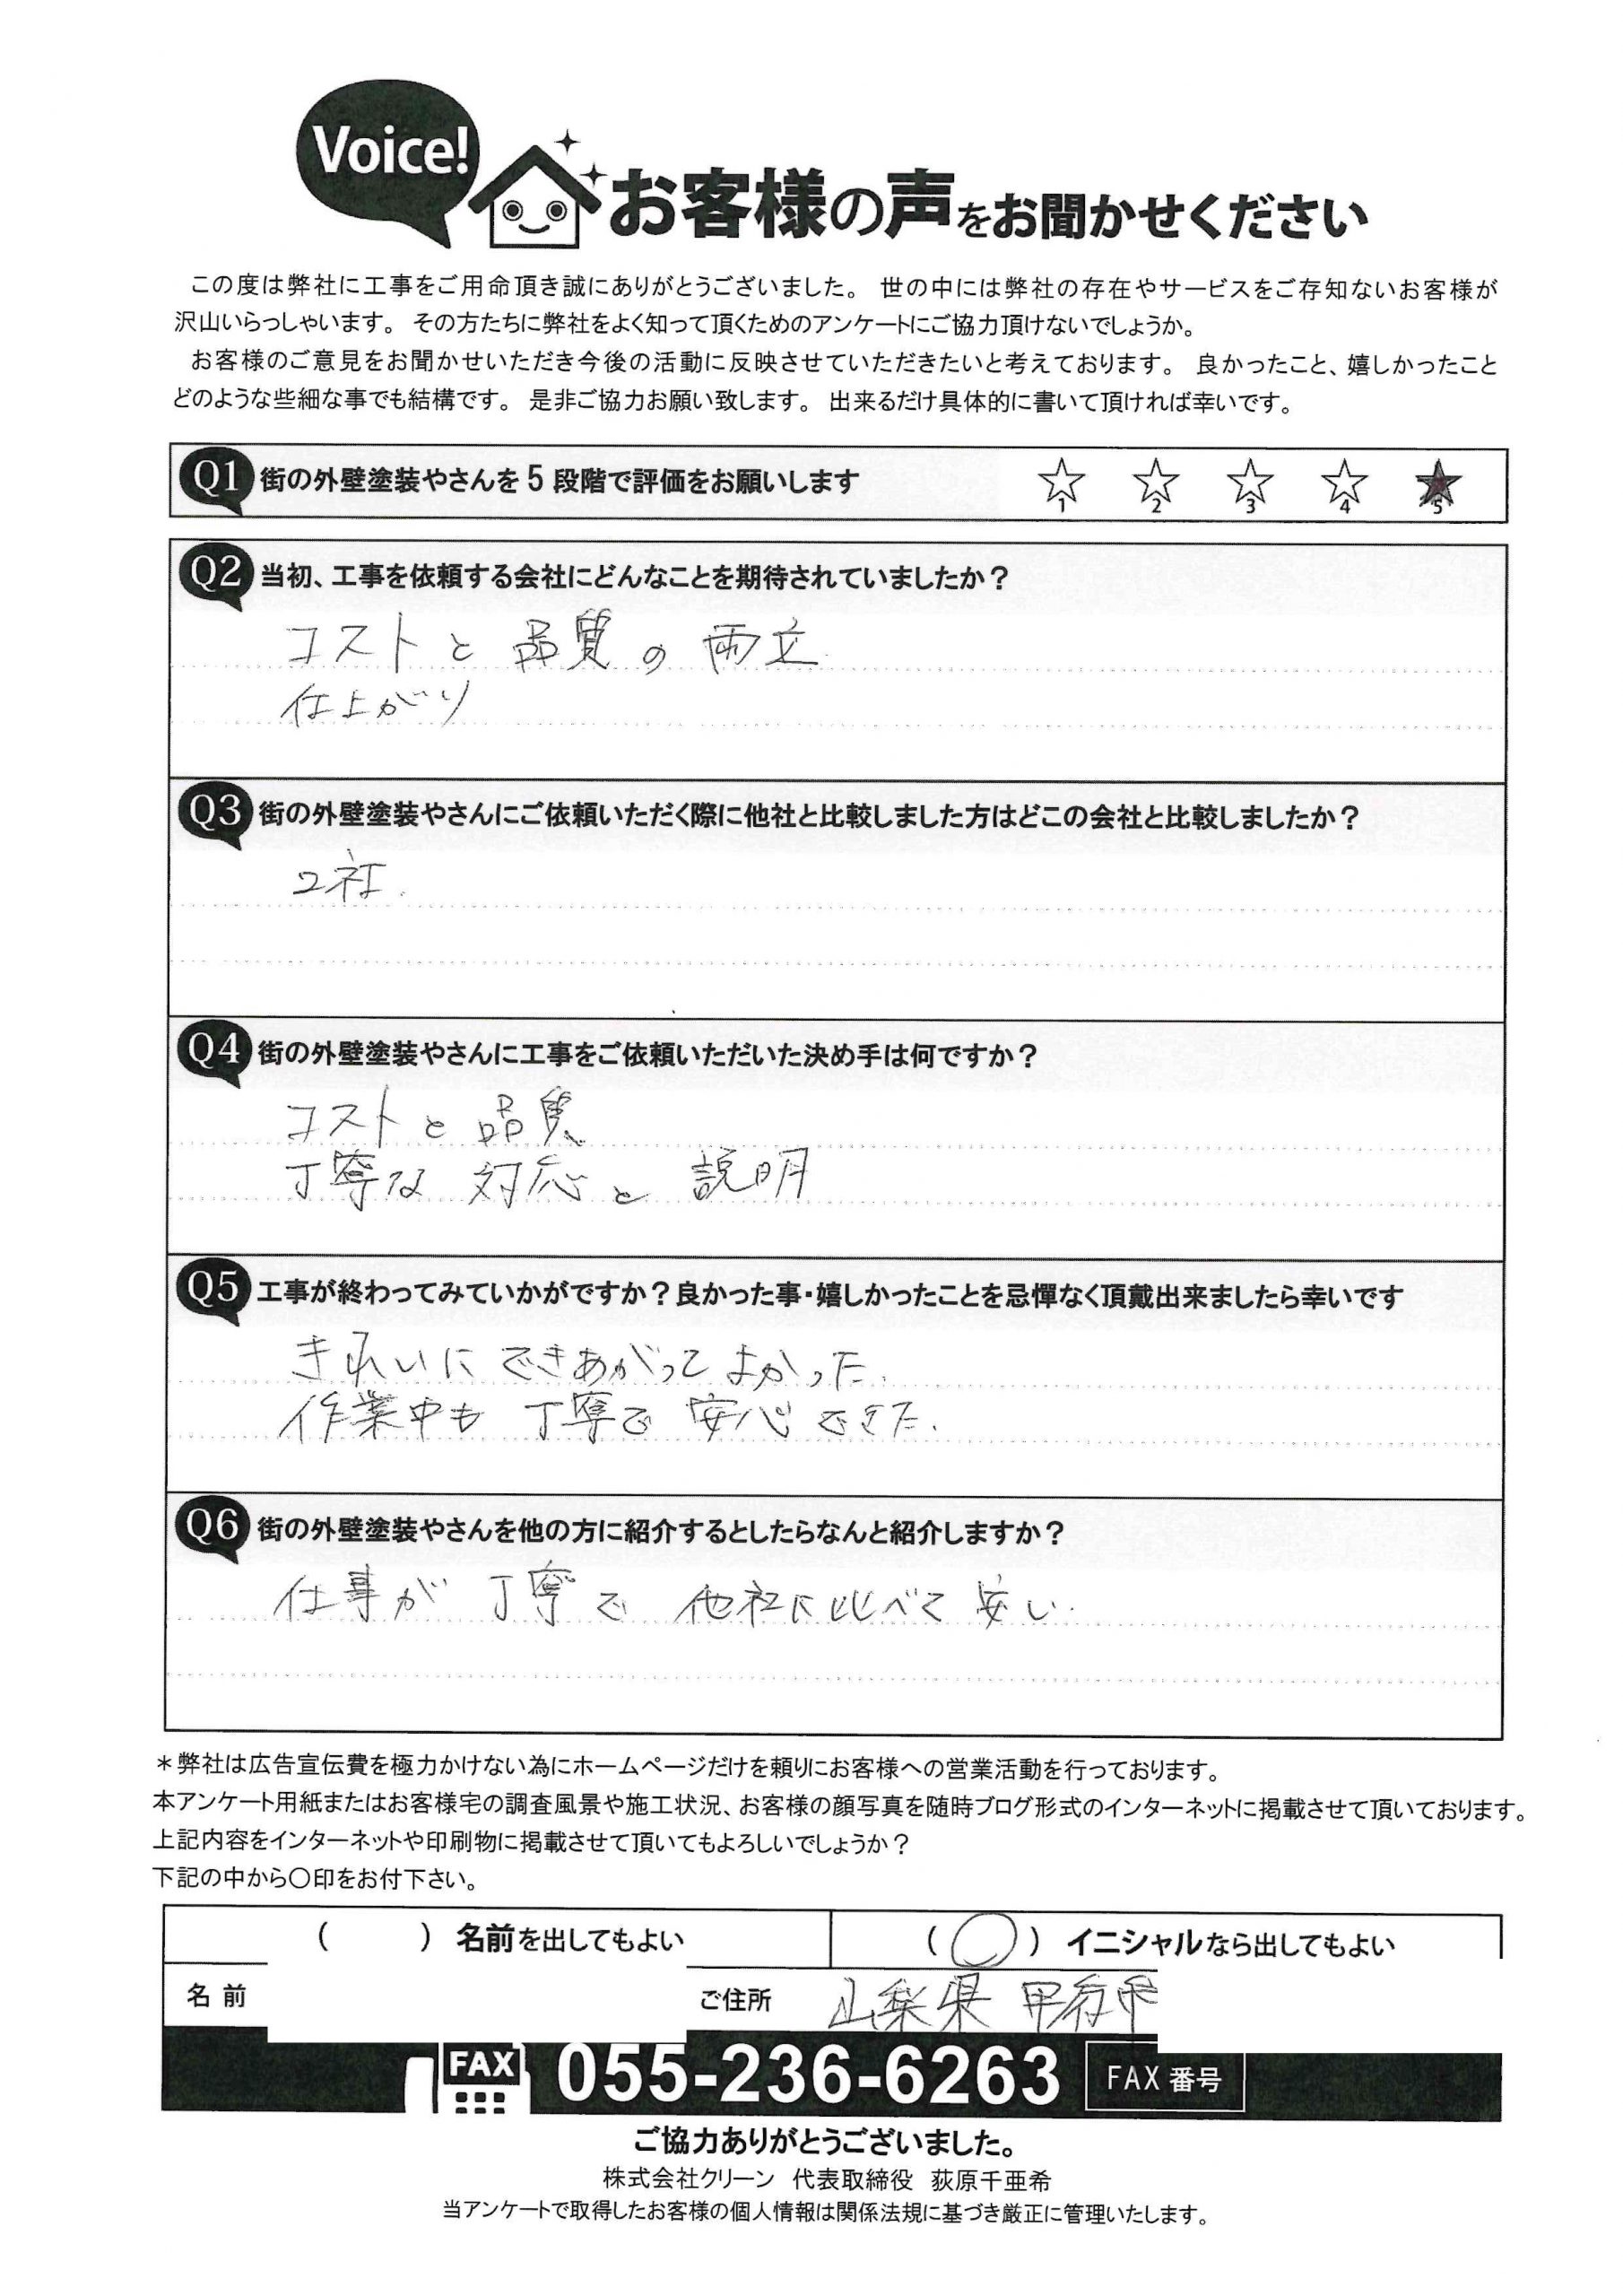 Voice!
お客様の声をお聞かせください
この度は弊社に工事をご用命頂き誠にありがとうございました。 世の中には弊社の存在やサービスをご存知ないお客様が
沢山いらっしゃいます。 その方たちに弊社をよく知って頂くためのアンケートにご協力頂けないでしょうか。
お客様のご意見をお聞かせいただき今後の活動に反映させていただきたいと考えております。 良かったこと、嬉しかったこと
どのような些細な事でも結構です。 是非ご協力お願い致します。 出来るだけ具体的に書いて頂ければ幸いです。
Q1 街の外壁塗装やさんを5段階で評価をお願いします ☆1 ☆2 ☆3 ☆4 ★5
Q2 当初、工事を依頼する会社にどんなことを期待されていましたか？
コストと品質の両立
仕上がり
Q3 街の外壁塗装やさんにご依頼いただく際に他社と比較しました方はどこの会社と比較しましたか？
2社.
Q4 街の外壁塗装やさんに工事をご依頼いただいた決め手は何ですか？
コストと品質
丁寧な対応と説明
Q5 工事が終わってみていかがですか？良かった事・嬉しかったことを忌憚なく頂戴出来ましたら幸いです
きれいにできあがってよかった.
作業中も丁寧で安心できた.
Q6 街の外壁塗装やさんを他の方に紹介するとしたらなんと紹介しますか？
仕事が丁寧で他社に比べて安い.
＊弊社は広告宣伝費を極力かけない為にホームページだけを頼りにお客様への営業活動を行っております。
本アンケート用紙またはお客様宅の調査風景や施工状況、お客様の顔写真を随時ブログ形式のインターネットに掲載させて頂いております。
上記内容をインターネットや印刷物に掲載させて頂いてもよろしいでしょうか？
下記の中から〇印をお付下さい。
（　　）名前を出してもよい （〇）イニシャルなら出してもよい
名前 ご住所 山梨県甲府市
FAX 055-236-6263 FAX番号
ご協力ありがとうございました。
株式会社クリーン 代表取締役 荻原千亜希
当アンケートで取得したお客様の個人情報は関係法規に基づき厳正に管理いたします。